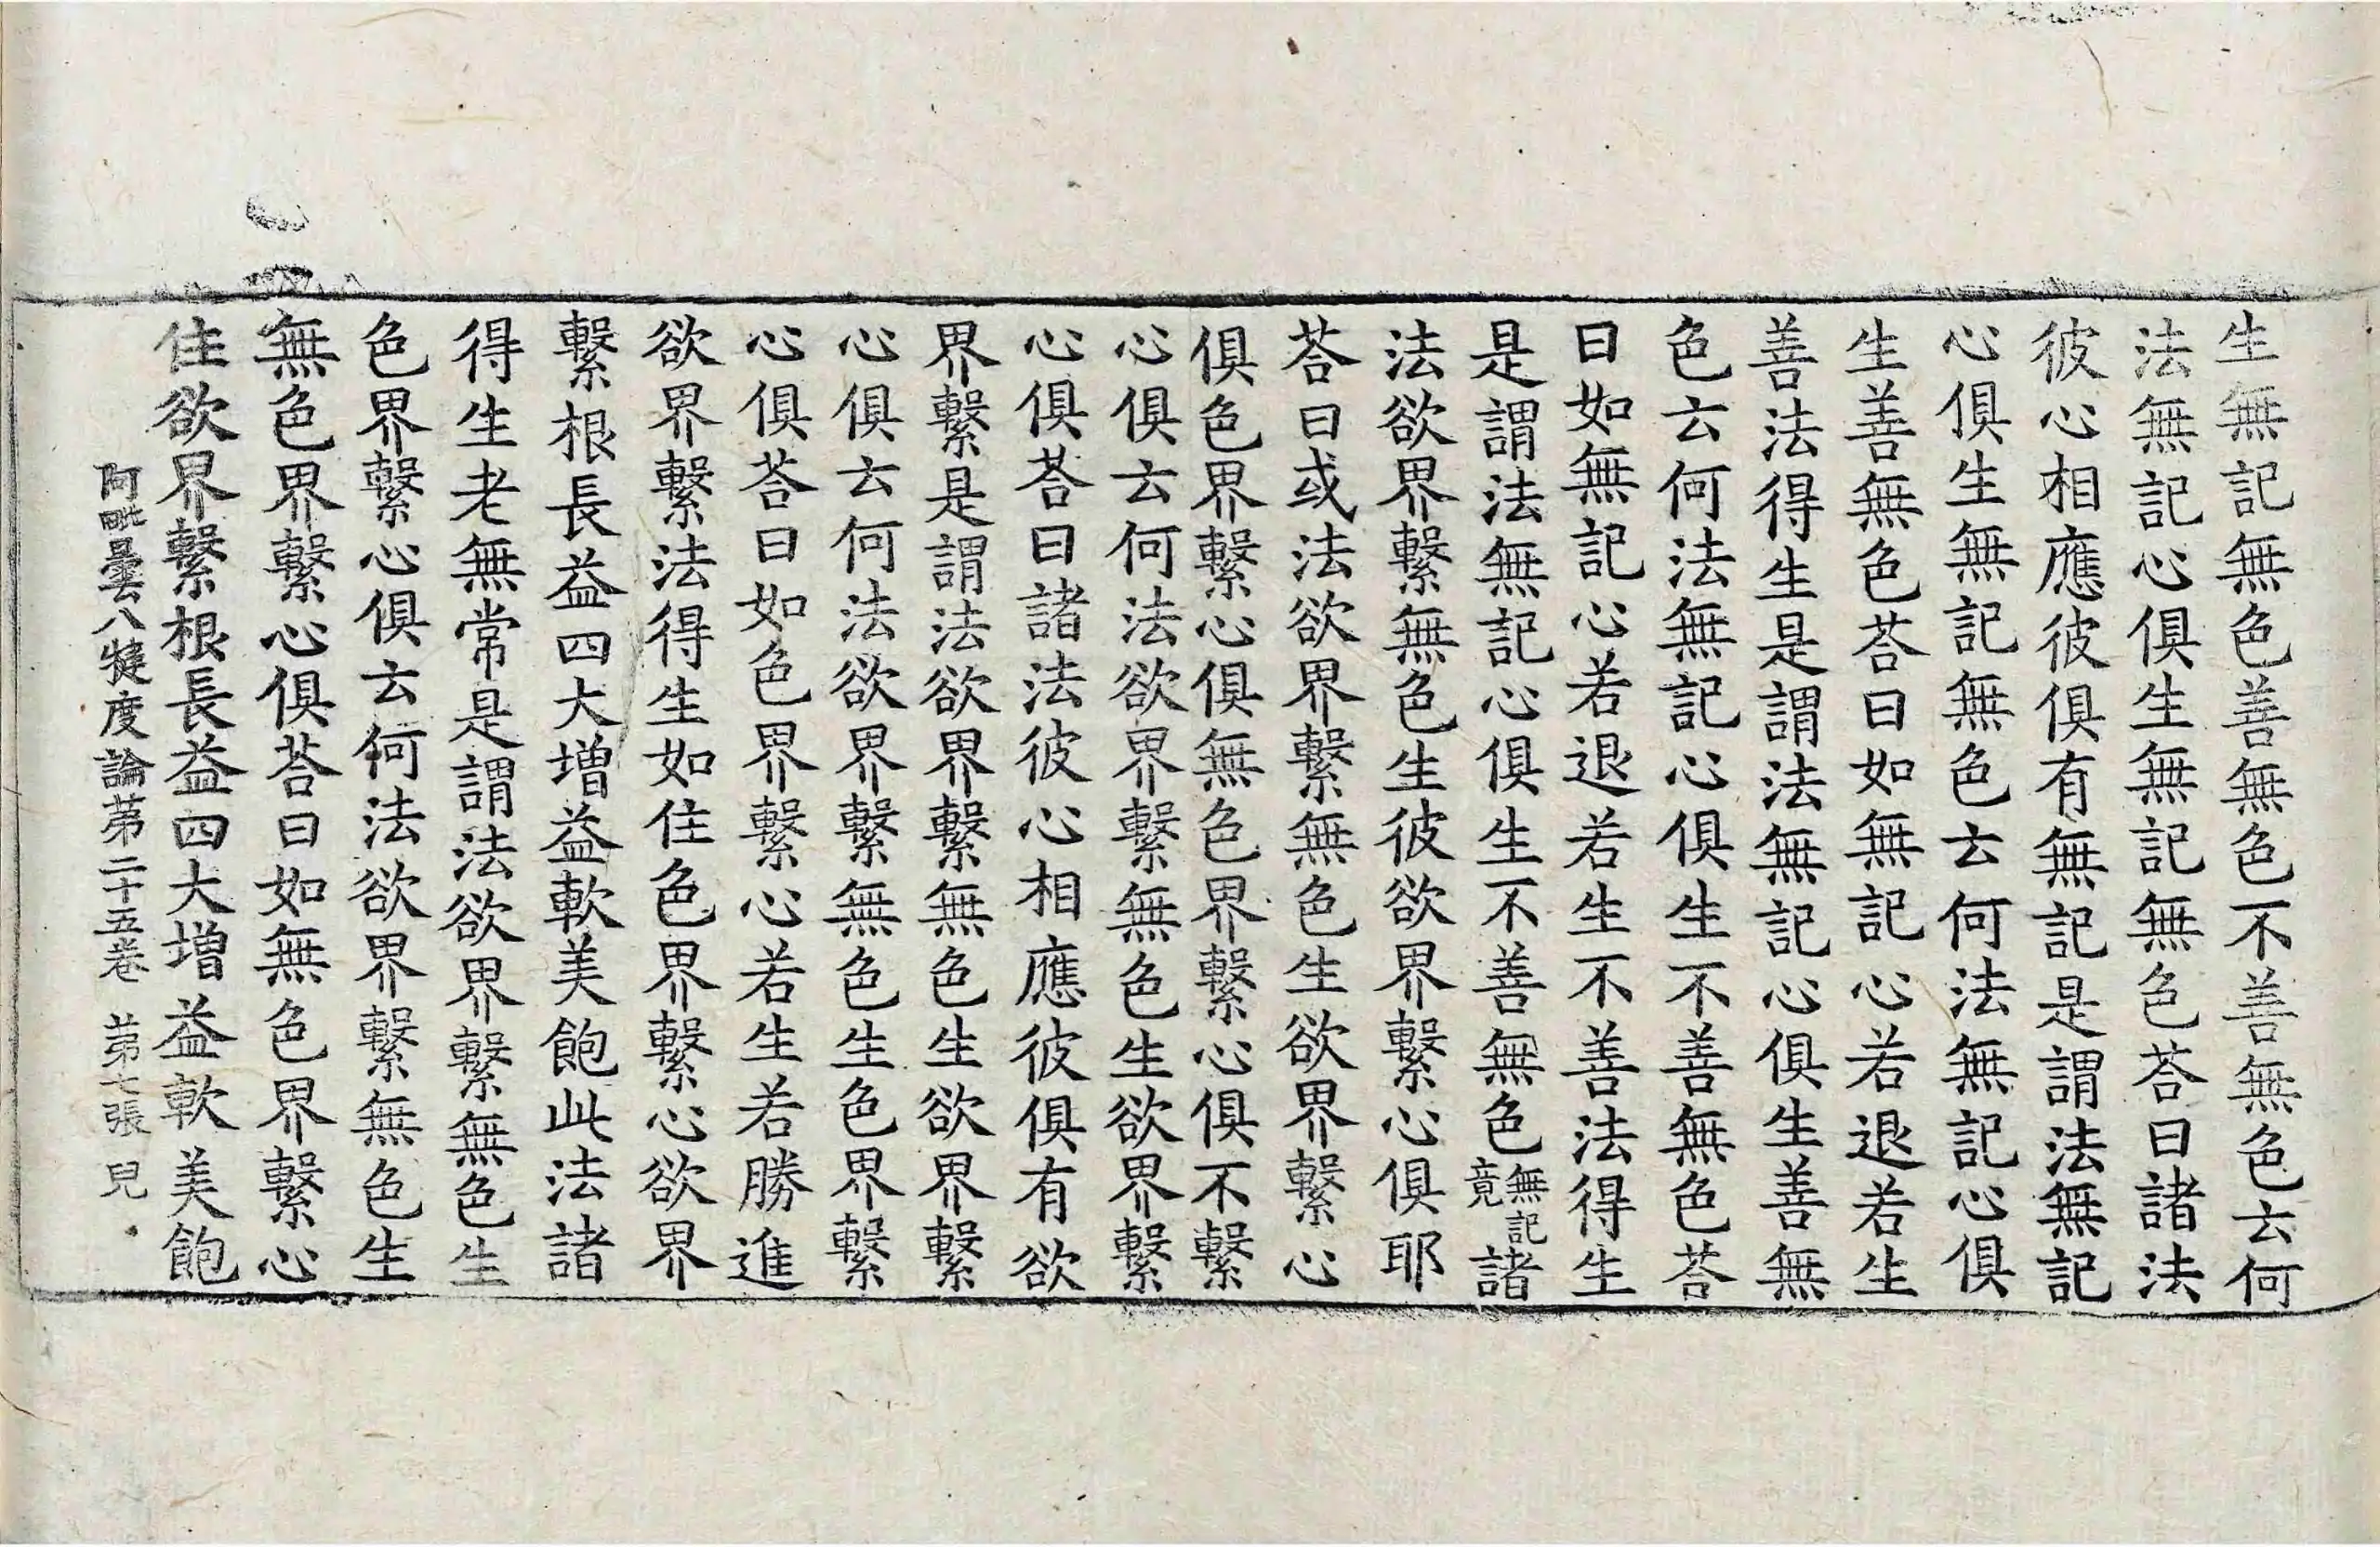 生無記無色善無色不善無色云何
法無記心俱生無記無色荅曰諸法
彼心相應彼俱有無記是謂法無記
心俱生無記無色云何法無記心俱
生善無色荅曰如無記心若退若生
善法得生是謂法無記心俱生善無
色云何法無記心俱生不善無色荅
曰如無記心若退若生不善法得生
是謂法無記心俱生不善無色無記竟諸
法欲界繫無色生彼欲界繫心俱耶
荅曰或法欲界繫無色生欲界繫心
俱色界繫心俱無色界繫心俱不繫
心俱云何法欲界繫無色生欲界繫
心俱荅曰諸法彼心相應彼俱有欲
界繫是謂法欲界繫無色生欲界繫
心俱云何法欲界繫無色生色界繫
心俱荅曰如色界繫心若生若勝進
欲界繫法得生如住色界繫心欲界
繫根長益四大增益軟美飽此法諸
得生老無常是謂法欲界繫無色生
色界繫心俱云何法欲界繫無色生
無色界繫心俱荅曰如無色界繫心
住欲界繫根長益四大增益軟美飽
阿毗曇八犍度論第二十五卷 第七張 兒